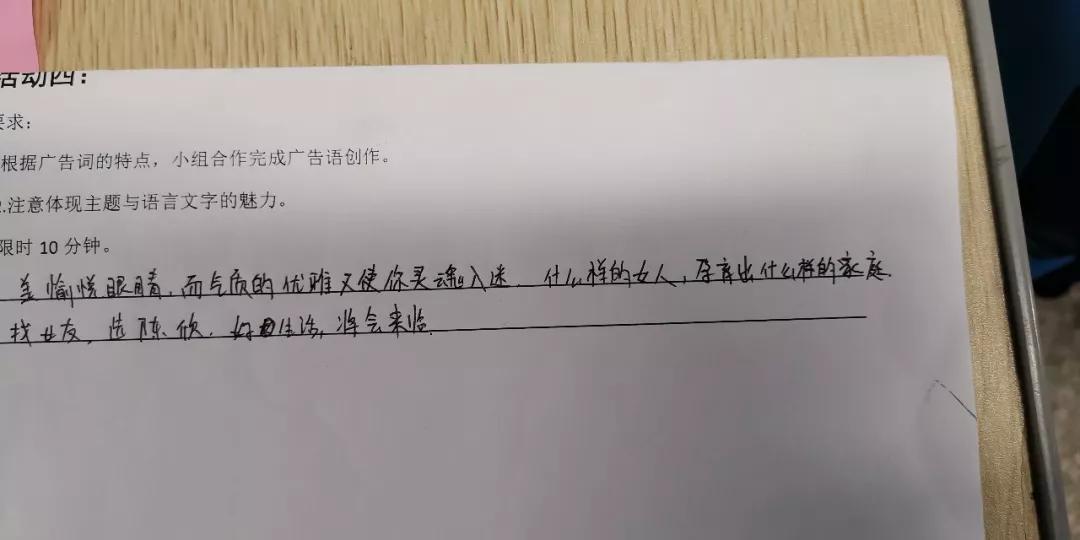 活动四：
要求：
根据广告词的特点，小组合作完成广告语创作。
2.注意体现主题与语言文字的魅力。
限时 10 分钟。
美愉悦眼睛，而气质的优雅又使你灵魂入迷．什么样的女人，孕育出什么样的家庭．
找女友，选陈欣．好的生活，将会来临．